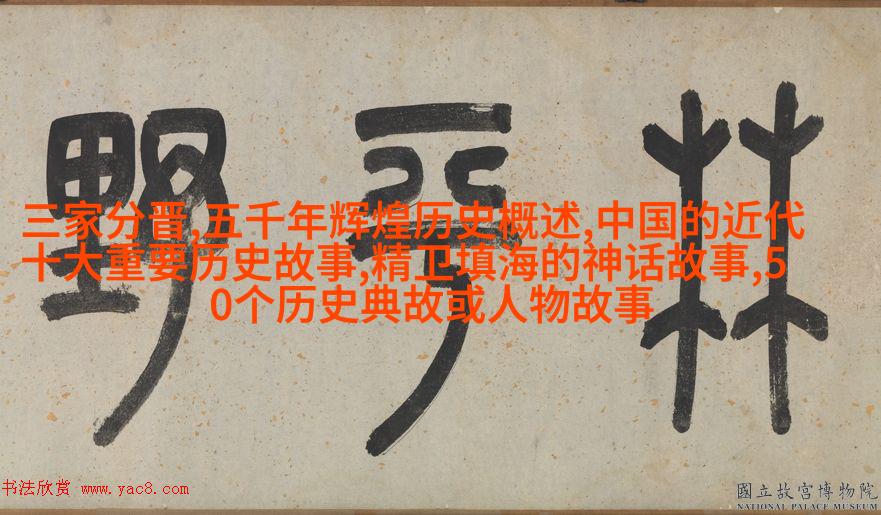 林平野
三家分晋,五千年辉煌历史概述,中国的近代
十大重要历史故事,精卫填海的神话故事,5
0个历史典故或人物故事
书法欣赏 www.yac8.com
國立故宮博物院
NATIONAL PALACE MUSEUM